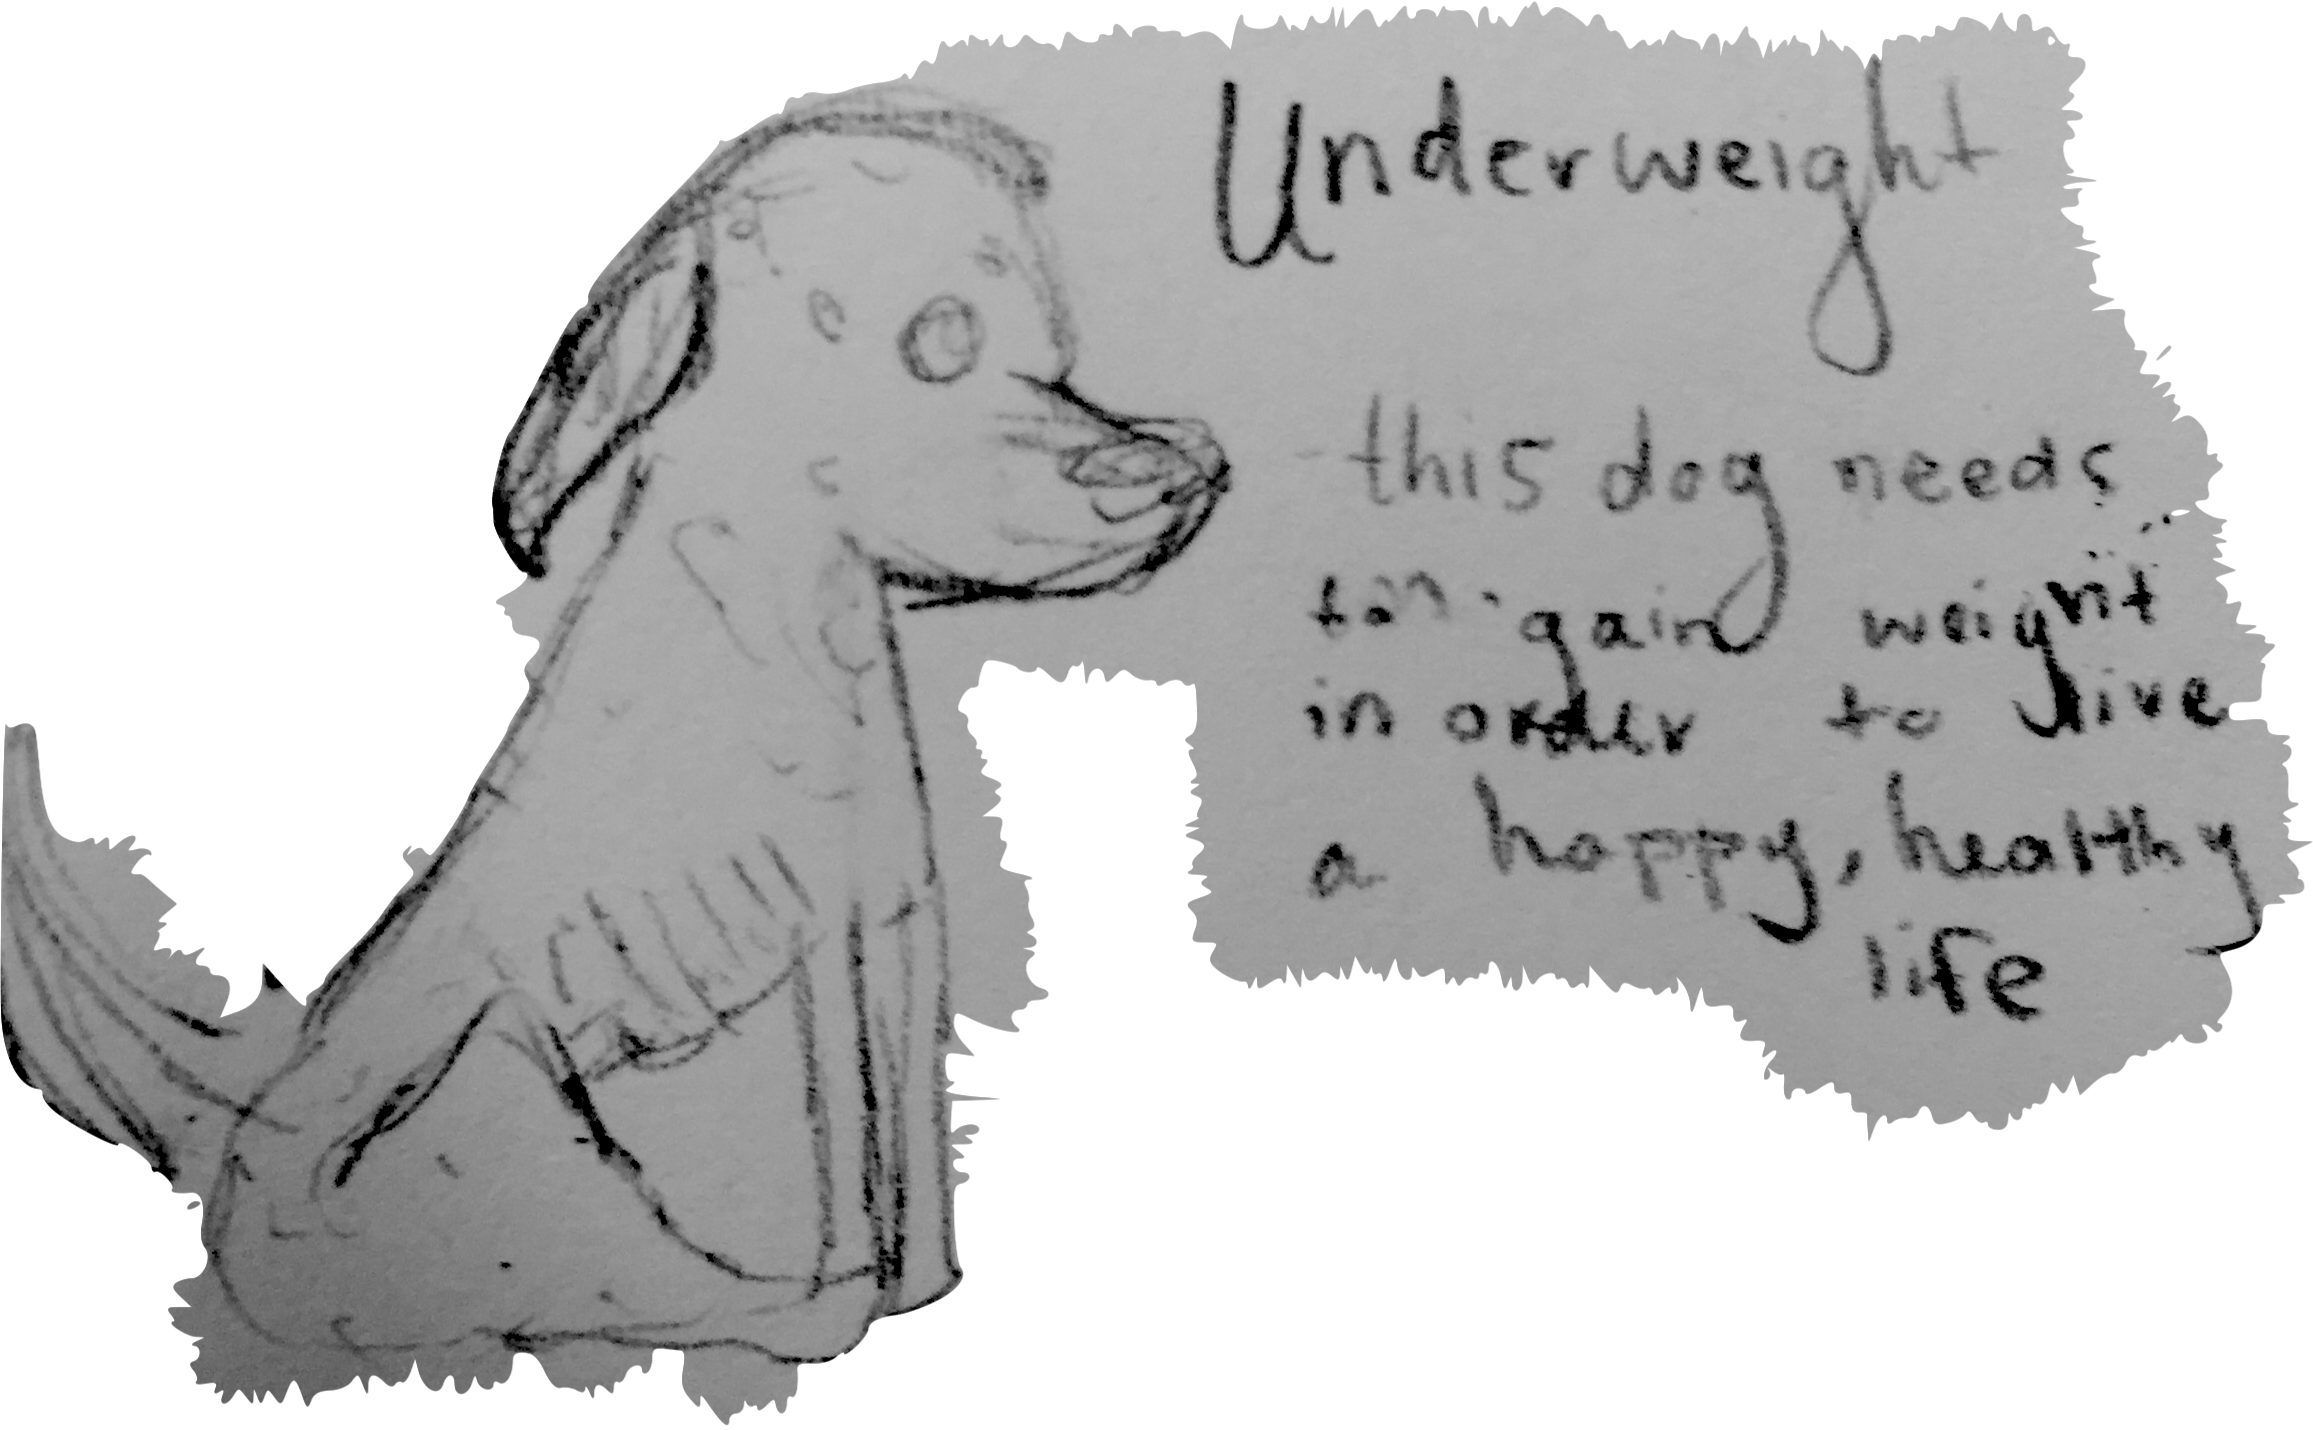 Underweight
this dog needs
to gain weight
in order to live
a happy, healthy
life